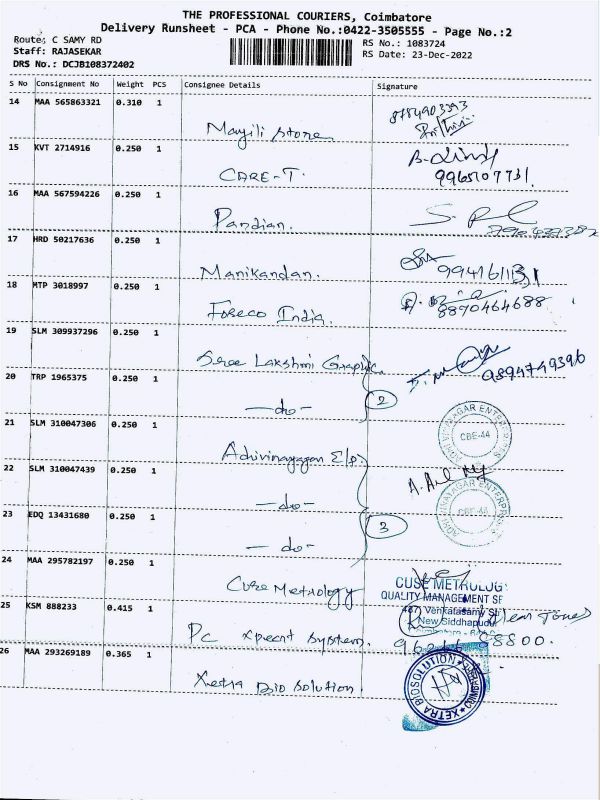 THE PROFESSIONAL COURIERS, Coimbatore
Delivery Runsheet - PCA - Phone No.:0422-3505555 - Page No.:2
Route: C SAMY RD
Staff: RAJASEKAR
DRS No.: DCJB108372402
RS No.: 1083724
RS Date: 23-Dec-2022
S No Consignment No Weight PCS Consignee Details Signature
14 MAA 565863321 0.310 1
8754903393
Mayili Store
15 KVT 2714916 0.250 1
CARE-T.
9965107731
16 MAA 567594226 0.250 1
Pandian.
17 HRD 50217636 0.250 1
Manikandan.
18 MTP 3018997 0.250 1
Foseco India.
8890464688
19 SLM 309937296 0.250 1
Sree Lakshmi Graphic.
9894749396
20 TRP 1965375 0.250 1
-do-
2
21 SLM 310047306 0.250 1
Adhivinayagan E/p
ADHI VINAYAGAR ENTERPRISES
CBE-44
22 SLM 310047439 0.250 1
-do-
ADHI VINAYAGAR ENTERPRISES
CBE-44
23 EDQ 13431680 0.250 1
-do-
3
24 MAA 295782197 0.250 1
Cuse Metrology
CUSE METROLOG
QUALITY MANAGEMENT SE
487 Venkatasamy Str
New Siddhapudur
25 KSM 888233 0.415 1
Pc Xpecnt System.
26 MAA 293269189 0.365 1
Xetra Bio Solution.
XETRA BIOSOLUTION